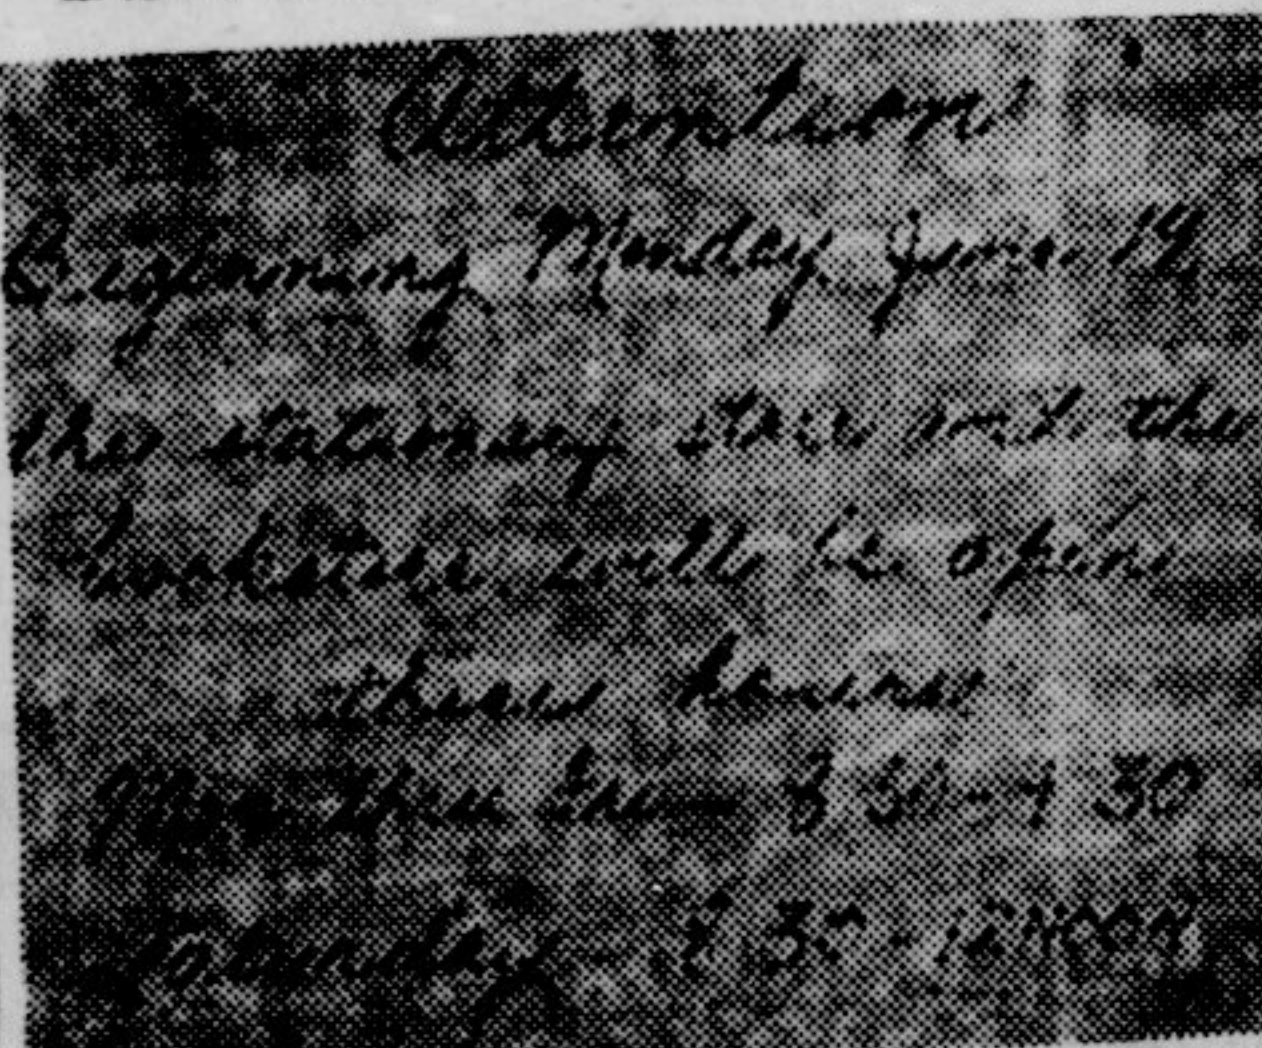 Attention
Beginning Monday June 14
the stationery store and the
bookstore will be open
these hours
Mon thru Fri - 8 30 - 4 30
Saturday - 8 30 - 12 noon